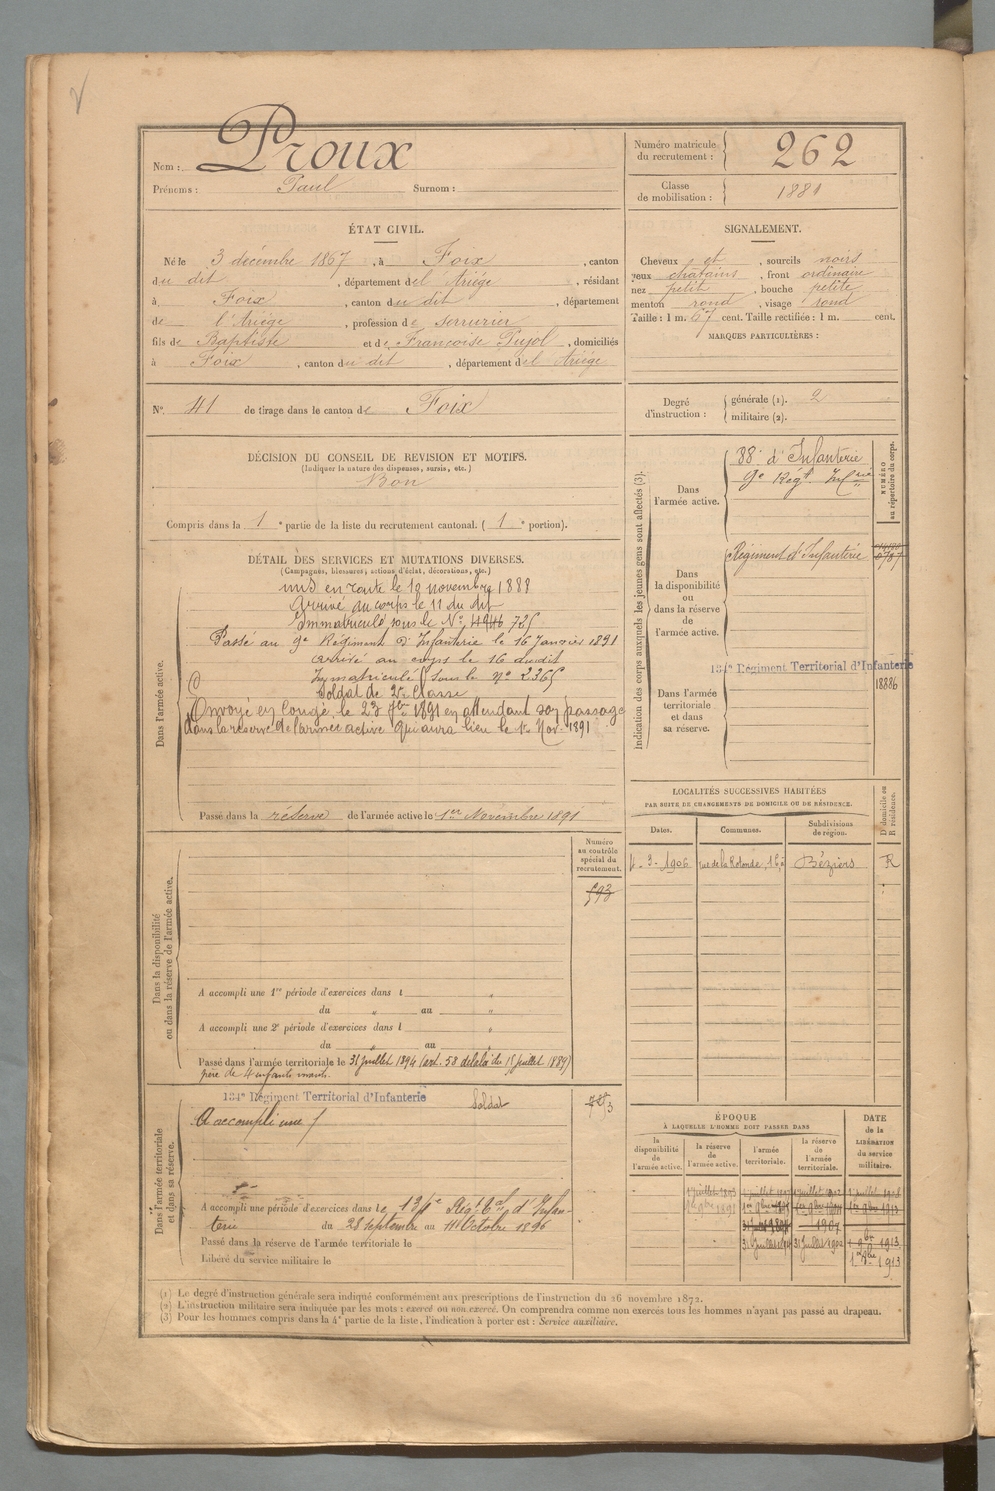 Nom : Proux
Prénoms : Paul Surnom :
Numéro matricule du recrutement : 262
Classe de mobilisation : 1881
ÉTAT CIVIL.
Né le 3 décembre 1867, à Foix, canton
du dit, département del Ariége, résidant
à Foix, canton du dit, département
de l'Ariége, profession de serrurier
fils de Baptiste et de Françoise Pujol, domiciliés
à Foix, canton du dit, département del Ariége
SIGNALEMENT.
Cheveux et, sourcils noirs
yeux chatains, front ordinaire
nez petit, bouche petite
menton rond, visage rond
Taille : 1 m. 67 cent. Taille rectifiée : 1 m. cent.
MARQUES PARTICULIÈRES :
N°. 41 de tirage dans le canton de Foix
Degré d'instruction : générale (1). 2
militaire (2).
DÉCISION DU CONSEIL DE REVISION ET MOTIFS.
(Indiquer la nature des dispenses, sursis, etc.)
Bon
Compris dans la 1e partie de la liste du recrutement cantonal. (1e portion).
DÉTAIL DES SERVICES ET MUTATIONS DIVERSES.
(Campagnes, blessures, actions d'éclat, décorations, etc.)
Dans l'armée active.
mis en route le 10 novembre 1888
Arrivé au corps le 11 du dit
Immatriculé sous le N° 4946 725
Passé au 9e Régiment d'Infanterie le 16 Janvier 1891
arrivé au corps le 16 dudit
Immatriculé sous le n° 2365
Soldat de 2e Classe
Envoyé en Congé, le 23 7bre 1891 en attendant son passage
dans la réserve de l'armée active qui aura lieu le 1er Nov. 1891
Passé dans la réserve de l'armée active le 1er Novembre 1891
Indication des corps auxquels les jeunes gens sont affectés (3).
NUMÉRO au répertoire du corps.
Dans l'armée active.
88e d'Infanterie
9e Regt Infrie
Dans la disponibilité ou dans la réserve de l'armée active.
Régiment d'Infanterie
Dans l'armée territoriale et dans sa réserve.
134e Régiment Territorial d'Infanterie
18886
LOCALITÉS SUCCESSIVES HABITÉES
PAR SUITE DE CHANGEMENTS DE DOMICILE OU DE RÉSIDENCE.
Dates. Communes. Subdivisions de région. D domicile ou R résidence.
3-1906 rue de la Rotonde, 16, à Béziers R
Dans la disponibilité ou dans la réserve de l'armée active.
Numéro au contrôle spécial du recrutement.
593
A accompli une 1re période d'exercices dans l "
du " au "
A accompli une 2e période d'exercices dans l "
du " au "
Passé dans l'armée territoriale le 31 juillet 1894 (art. 58 de la loi du 15 juillet 1889)
père de 4 enfants vivants.
Dans l'armée territoriale et dans sa réserve.
134e Régiment Territorial d'Infanterie Soldat
A accompli une
A accompli une période d'exercices dans le 134e Régt Cal d'Infan-
terie du 28 septembre au 11 Octobre 1896
Passé dans la réserve de l'armée territoriale le
Libéré du service militaire le
ÉPOQUE
À LAQUELLE L'HOMME DOIT PASSER DANS
la disponibilité de l'armée active. la réserve de l'armée active. l'armée territoriale. la réserve de l'armée territoriale.
DATE de la LIBÉRATION du service militaire.
1907
1913
(1) Le degré d'instruction générale sera indiqué conformément aux prescriptions de l'instruction du 26 novembre 1872.
(2) L'instruction militaire sera indiquée par les mots : exercé ou non exercé. On comprendra comme non exercés tous les hommes n'ayant pas passé au drapeau.
(3) Pour les hommes compris dans la 4e partie de la liste, l'indication à porter est : Service auxiliaire.